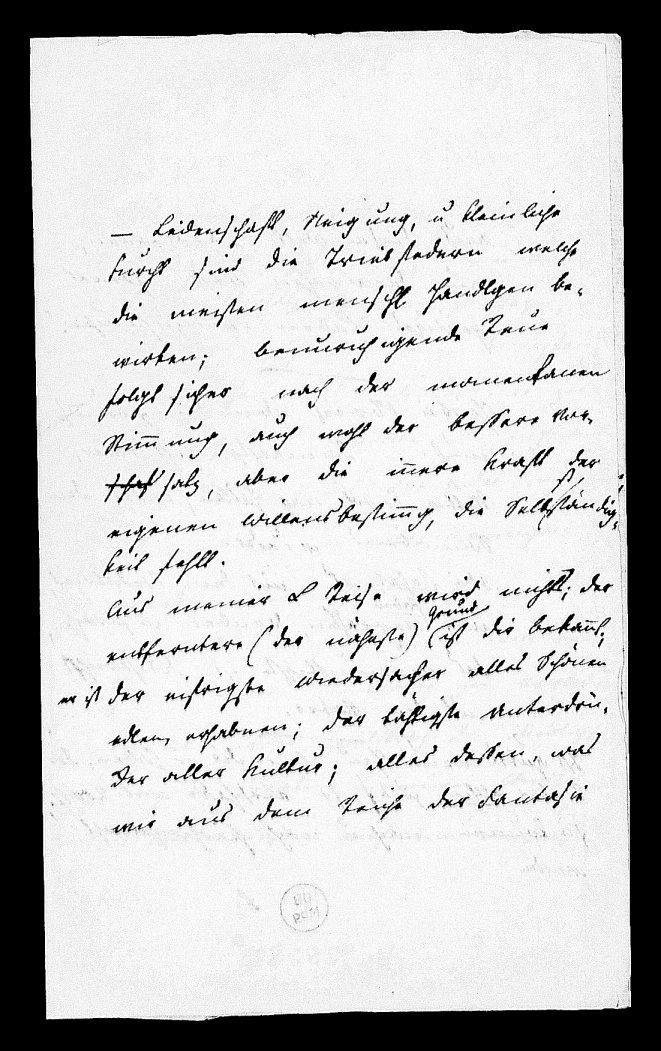 — Leidenschaft, Neigung, u kleinliche
Furcht sind die Triebfedern welche
die meisten menschl Handlgen be-
wirken; beunruhigende Reue
folgt sicher nach der momentanen
Stimmung, auch wohl der bessere Vor-
satz, aber die innere Kraft der
eigenen Willensbestimg, die Selbstständig-
keit fehlt.
Aus meiner Reise wird nichts; der
entferntere (der nächste) Grund ist dir bekannt;
er ist der eifrigste Wiedersacher alles Schönen
edlen, erhabnen; der thätigste Unterdrü-
cker aller Kultur; alles dessen, was
wir aus dem Reiche der Fantasie